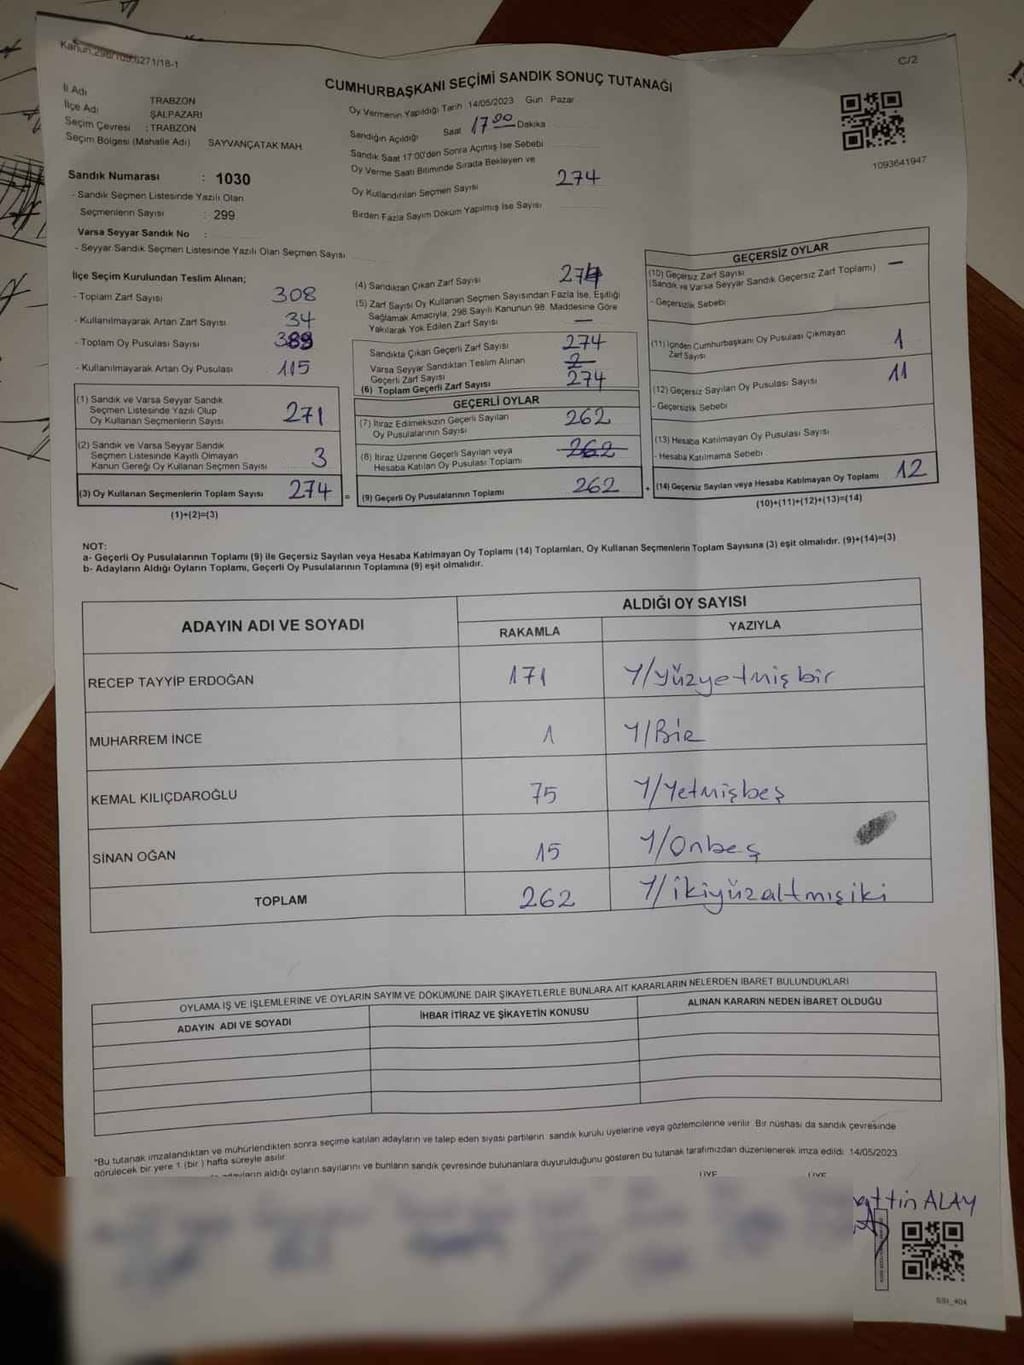 Kanun:298/109,6271/18-1
C/2
CUMHURBAŞKANI SEÇİMİ SANDIK SONUÇ TUTANAĞI
İl Adı TRABZON
İlçe Adı ŞALPAZARI
Seçim Çevresi : TRABZON
Seçim Bölgesi (Mahalle Adı) SAYVANÇATAK MAH.
Sandık Numarası : 1030
- Sandık Seçmen Listesinde Yazılı Olan
Seçmenlerin Sayısı : 299
Varsa Seyyar Sandık No :
- Seyyar Sandık Seçmen Listesinde Yazılı Olan Seçmen Sayısı
Oy Vermenin Yapıldığı Tarih 14/05/2023 Gün Pazar
Sandığın Açıldığı Saat 17 00 Dakika
Sandık Saat 17:00'den Sonra Açılmış İse Sebebi
Oy Verme Saati Bitiminde Sırada Bekleyen ve
Oy Kullandırılan Seçmen Sayısı 274
Birden Fazla Sayım Döküm Yapılmış İse Sayısı
1093641947
İlçe Seçim Kurulundan Teslim Alınan;
- Toplam Zarf Sayısı 308
- Kullanılmayarak Artan Zarf Sayısı 34
- Toplam Oy Pusulası Sayısı 389
- Kullanılmayarak Artan Oy Pusulası 115
(1) Sandık ve Varsa Seyyar Sandık
Seçmen Listesinde Yazılı Olup
Oy Kullanan Seçmenlerin Sayısı 271
(2) Sandık ve Varsa Seyyar Sandık
Seçmen Listesinde Kayıtlı Olmayan
Kanun Gereği Oy Kullanan Seçmen Sayısı 3
(3) Oy Kullanan Seçmenlerin Toplam Sayısı 274 =
(1)+(2)=(3)
(4) Sandıktan Çıkan Zarf Sayısı 274
(5) Zarf Sayısı Oy Kullanan Seçmen Sayısından Fazla İse, Eşitliği
Sağlamak Amacıyla, 298 Sayılı Kanunun 98. Maddesine Göre
Yakılarak Yok Edilen Zarf Sayısı —
Sandıkta Çıkan Geçerli Zarf Sayısı 274
Varsa Seyyar Sandıktan Teslim Alınan
Geçerli Zarf Sayısı
(6) Toplam Geçerli Zarf Sayısı 274
GEÇERLİ OYLAR
(7) İtiraz Edilmeksizin Geçerli Sayılan
Oy Pusulalarının Sayısı 262
(8) İtiraz Üzerine Geçerli Sayılan veya
Hesaba Katılan Oy Pusulası Toplamı 262
(9) Geçerli Oy Pusulalarının Toplamı 262 +
GEÇERSİZ OYLAR
(10) Geçersiz Zarf Sayısı
(Sandık ve Varsa Seyyar Sandık Geçersiz Zarf Toplamı) —
- Geçersizlik Sebebi
(11) İçinden Cumhurbaşkanı Oy Pusulası Çıkmayan
Zarf Sayısı 1
(12) Geçersiz Sayılan Oy Pusulası Sayısı 11
- Geçersizlik Sebebi
(13) Hesaba Katılmayan Oy Pusulası Sayısı
- Hesaba Katılmama Sebebi
(14) Geçersiz Sayılan veya Hesaba Katılmayan Oy Toplamı 12
(10)+(11)+(12)+(13)=(14)
NOT:
a- Geçerli Oy Pusulalarının Toplamı (9) ile Geçersiz Sayılan veya Hesaba Katılmayan Oy Toplamı (14) Toplamları, Oy Kullanan Seçmenlerin Toplam Sayısına (3) eşit olmalıdır. (9)+(14)=(3)
b- Adayların Aldığı Oyların Toplamı, Geçerli Oy Pusulalarının Toplamına (9) eşit olmalıdır.
ADAYIN ADI VE SOYADI
ALDIĞI OY SAYISI
RAKAMLA YAZIYLA
RECEP TAYYİP ERDOĞAN 171 Y/yüzyetmişbir
MUHARREM İNCE 1 Y/Bir
KEMAL KILIÇDAROĞLU 75 Y/Yetmişbeş
SİNAN OĞAN 15 Y/Onbeş
TOPLAM 262 Y/ikiyüzaltmışiki
OYLAMA İŞ VE İŞLEMLERİNE VE OYLARIN SAYIM VE DÖKÜMÜNE DAİR ŞİKAYETLERLE BUNLARA AİT KARARLARIN NELERDEN İBARET BULUNDUKLARI
ADAYIN ADI VE SOYADI İHBAR İTİRAZ VE ŞİKAYETİN KONUSU ALINAN KARARIN NEDEN İBARET OLDUĞU
*Bu tutanak imzalandıktan ve mühürlendikten sonra seçime katılan adayların ve talep eden siyasi partilerin sandık kurulu üyelerine veya gözlemcilerine verilir. Bir nüshası da sandık çevresinde
görülecek bir yere 1 (bir) hafta süreyle asılır.
aldığı oyların sayılarını ve bunların sandık çevresinde bulunanlara duyurulduğunu gösteren bu tutanak tarafımızdan düzenlenerek imza edildi. 14/05/2023
ÜYE ÜYE
ALAY